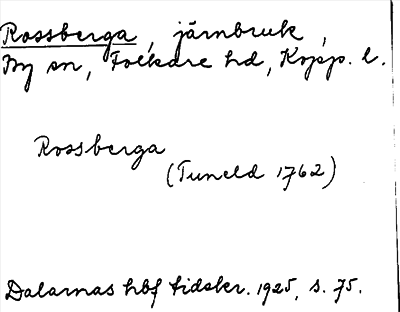 Rossberga, järnbruk,
By sn, Folkare hd, Kopp. l.
Rossberga
(Tuneld 1762)
Dalarnas hbf tidskr. 1925, s. 75.